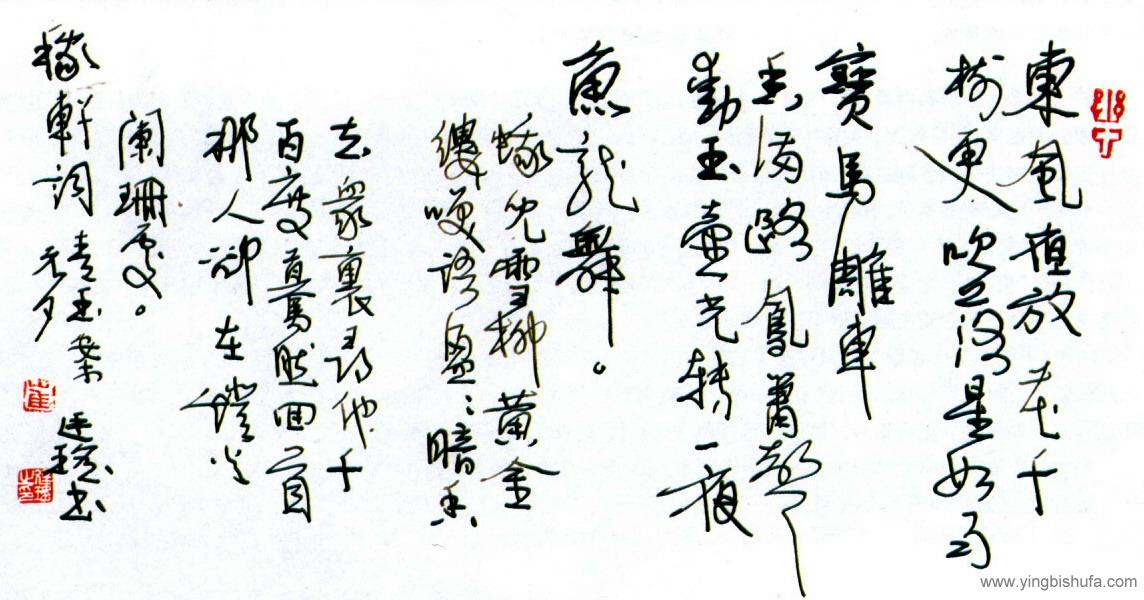 東風夜放花千
樹更吹落星如雨
寶馬雕車
香滿路鳳簫聲
動玉壺光轉一夜
魚龍舞。
蛾兒雪柳黃金
縷笑語盈〻暗香
去眾裏尋他千
百度驀然回首
那人卻在燈火
闌珊處。
稼軒詞青玉案
元夕
書
崔
www.yingbishufa.com